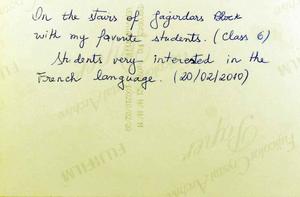 On the stairs of Jagirdars Block
with my favorite students. (Class 6)
Students very interested in the
French language. (20/02/2010)
FUJIFILM
Fujicolor Crystal Archive
Paper
FUJIFILM